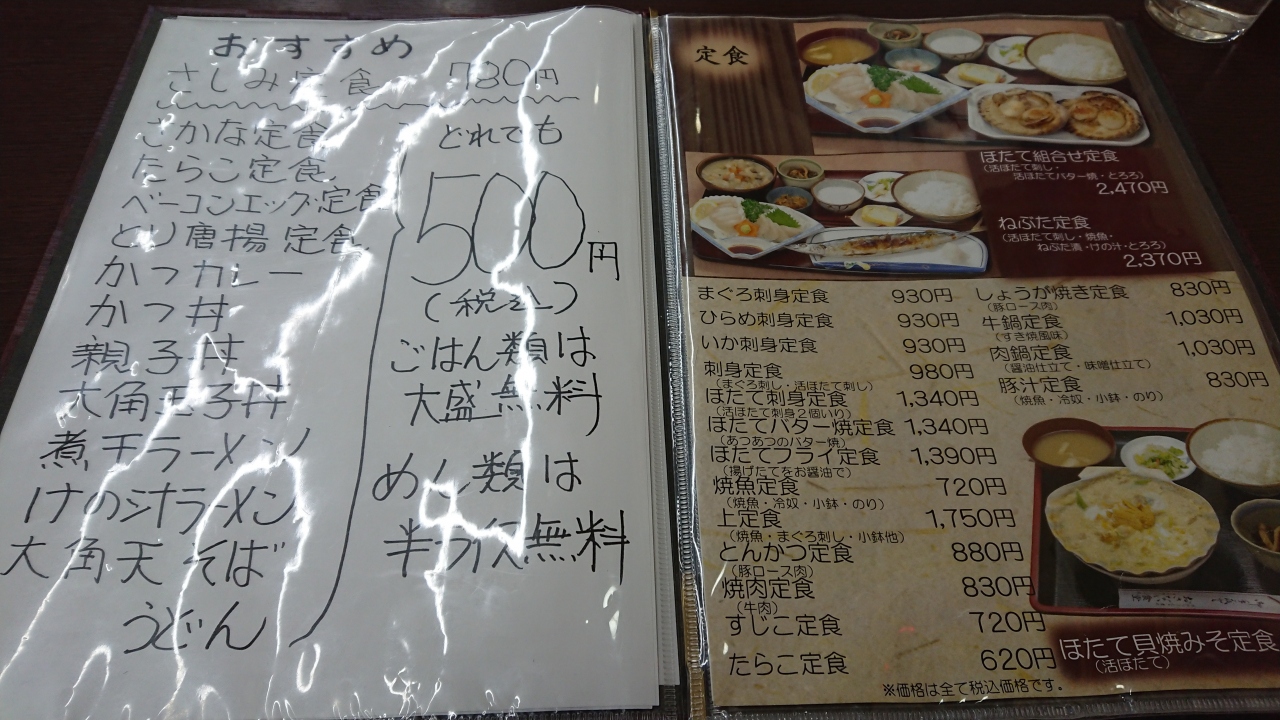 おすすめ
さしみ定食 780円
さかな定食
たらこ定食
ベーコンエッグ定食
とり唐揚定食
かつカレー
かつ丼
親子丼
大角玉子丼
煮干ラーメン
けの汁ラーメン
大角天そば
うどん
どれでも
500円
(税込)
ごはん類は
大盛無料
めん類は
半ライス無料
定食
ほたて組合せ定食
(活ほたて刺し・
活ほたてバター焼・とろろ)
2,470円
ねぶた定食
(活ほたて刺し・焼魚・
ねぶた漬・けの汁・とろろ)
2,370円
まぐろ刺身定食 930円
ひらめ刺身定食 930円
いか刺身定食 930円
刺身定食 980円
(まぐろ刺し・活ほたて刺し)
ほたて刺身定食 1,340円
(活ほたて刺身2個いり)
ほたてバター焼定食 1,340円
(あつあつのバター焼)
ほたてフライ定食 1,390円
(揚げたてをお醤油で)
焼魚定食 720円
(焼魚・冷奴・小鉢・のり)
上定食 1,750円
(焼魚・まぐろ刺し・小鉢他)
とんかつ定食 880円
(豚ロース肉)
焼肉定食 830円
(牛肉)
すじこ定食 720円
たらこ定食 620円
しょうが焼き定食 830円
(豚ロース肉)
牛鍋定食 1,030円
(すき焼風味)
肉鍋定食 1,030円
(醤油仕立て・味噌仕立て)
豚汁定食 830円
(焼魚・冷奴・小鉢・のり)
ほたて貝焼みそ定食
(活ほたて)
※価格は全て税込価格です。